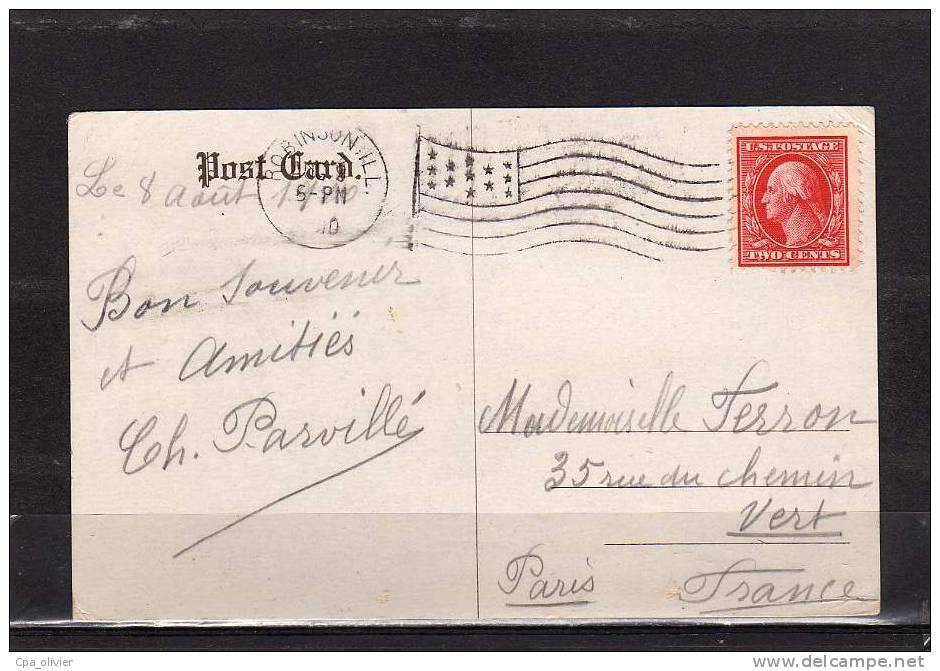 Post Card.
ROBINSON, ILL.
5-PM
10
U.S. POSTAGE
TWO CENTS
Le 8 Août 1910
Bon souvenir
et Amitiés
Ch. Parvillé
Mademoiselle Ferron
35 rue du chemin
Vert
Paris
France
Cpa_olivier
delcampe.net